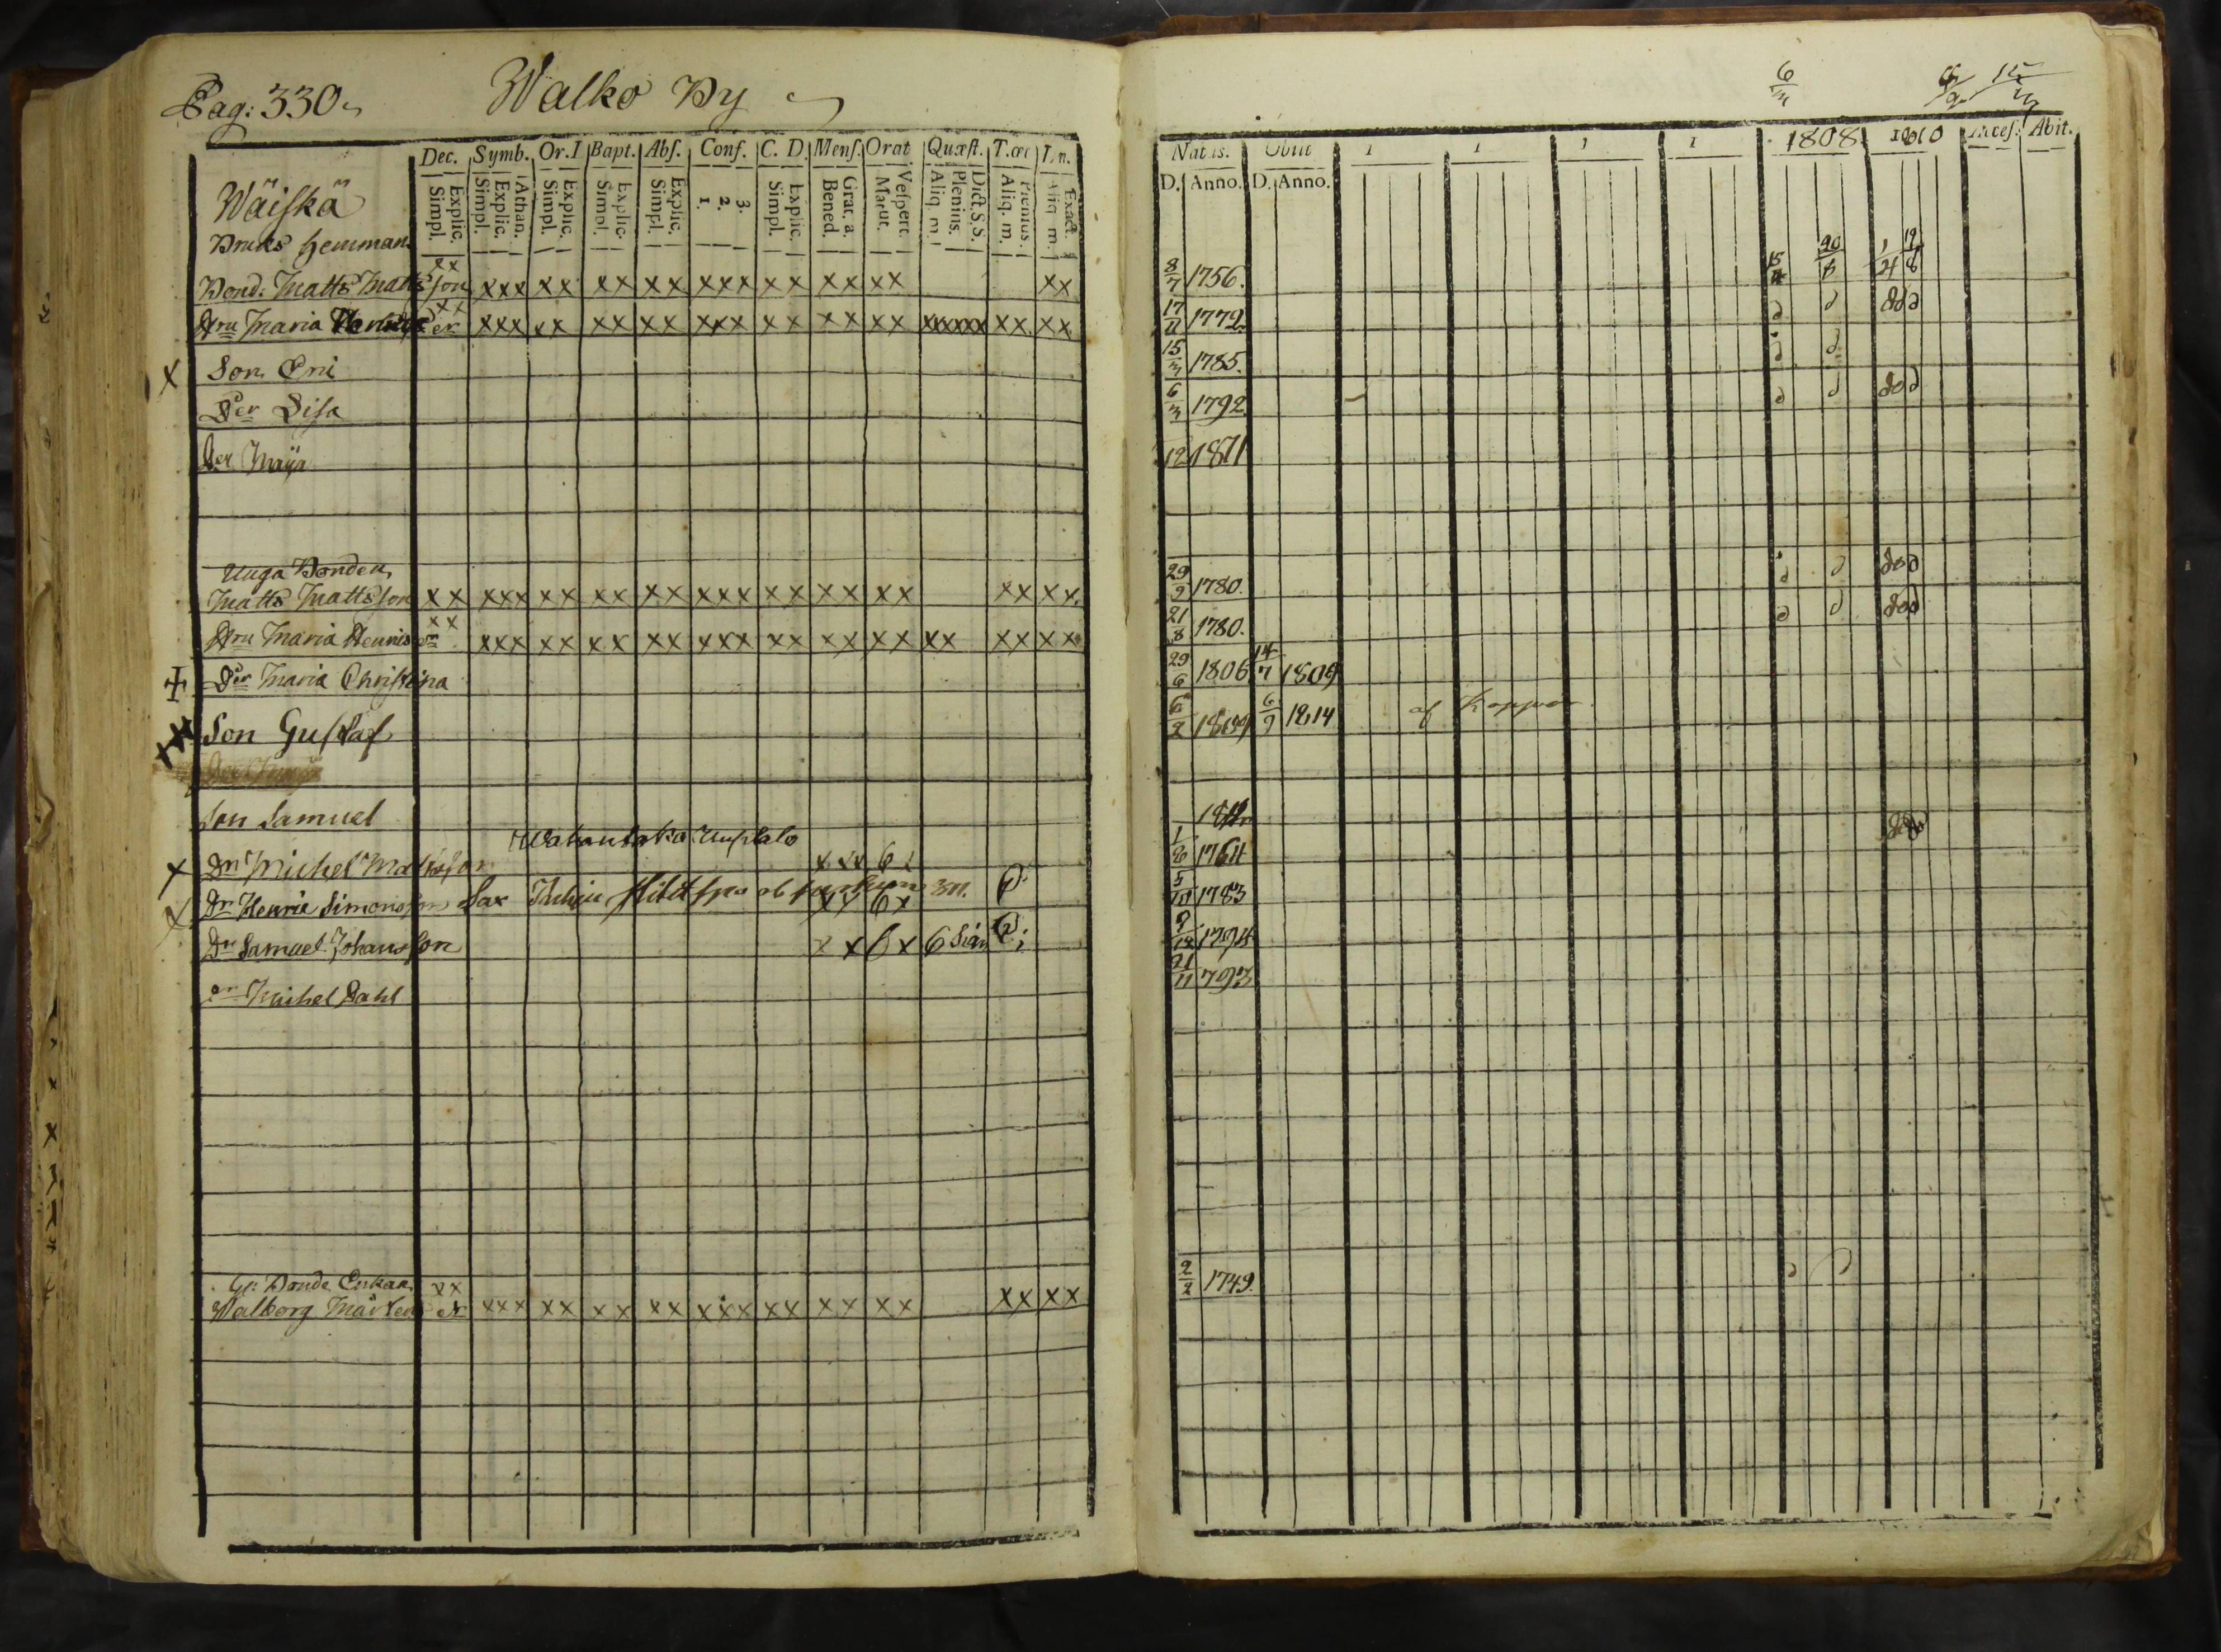 Pag: 330
Walko By
Dec. Symb. Or. D Bapt. Abs. Conf. C. D. Mens. Orat. Quæst. T.œc
Explic. Simpl. Athan. Explic. Simpl. Explic. Simpl. Explic. Simpl. Explic. Simpl. 3. 2. 1. Explic. Simpl. Grat. a. Bened. Vespert. Matut. Dict. S.S. Plenius. Aliq. m. Plenius. Aliq. m. Exact. Aliq. m.
Wäiskä
Bruks hemman
Bond. Matts Mattsson xx xxx xx xx xx xxx xx xx xx xx
Hru Maria xx er xxx xx xx xx xxx xx xx xx xxxxxx xx xx
x Son Eric
Der Lisa
Der Maja
Unga Bonden
Matts Mattsson xx xxx xx xx xx xxx xx xx xx xx xx
Hru Maria Henrics er xx xxx xx xx xx xxx xx xx xx xx xx xx
Der Maria Christina
Son Gustaf
Son Samuel
x Dr Michel Mattsson
x Dr Henric Simonsson
Dr Samuel Johansson
Dr Michel Dahl
Gl. Bonde Enkan xx
Walborg Mårtens er xxx xx xx xx xxx xx xx xx xx xx
6/3
Natus. Obiit 1 1 1 1 1808 1810 Acces. Abit.
D. Anno. D. Anno.
8/7 1756. 20/8 1/4 19/8
17/11 1772. d d dod
15/3 1785. d d
6/3 1792 d d dod
12 1811
29/9 1780. d d dod
21/8 1780. d d dod
29/6 1806 14/7 1809
6/2 1809 6/9 1814 af koppor
1/8 1764
5/10 1783
9/12 1794
21/11 793
2/2 1749. d d